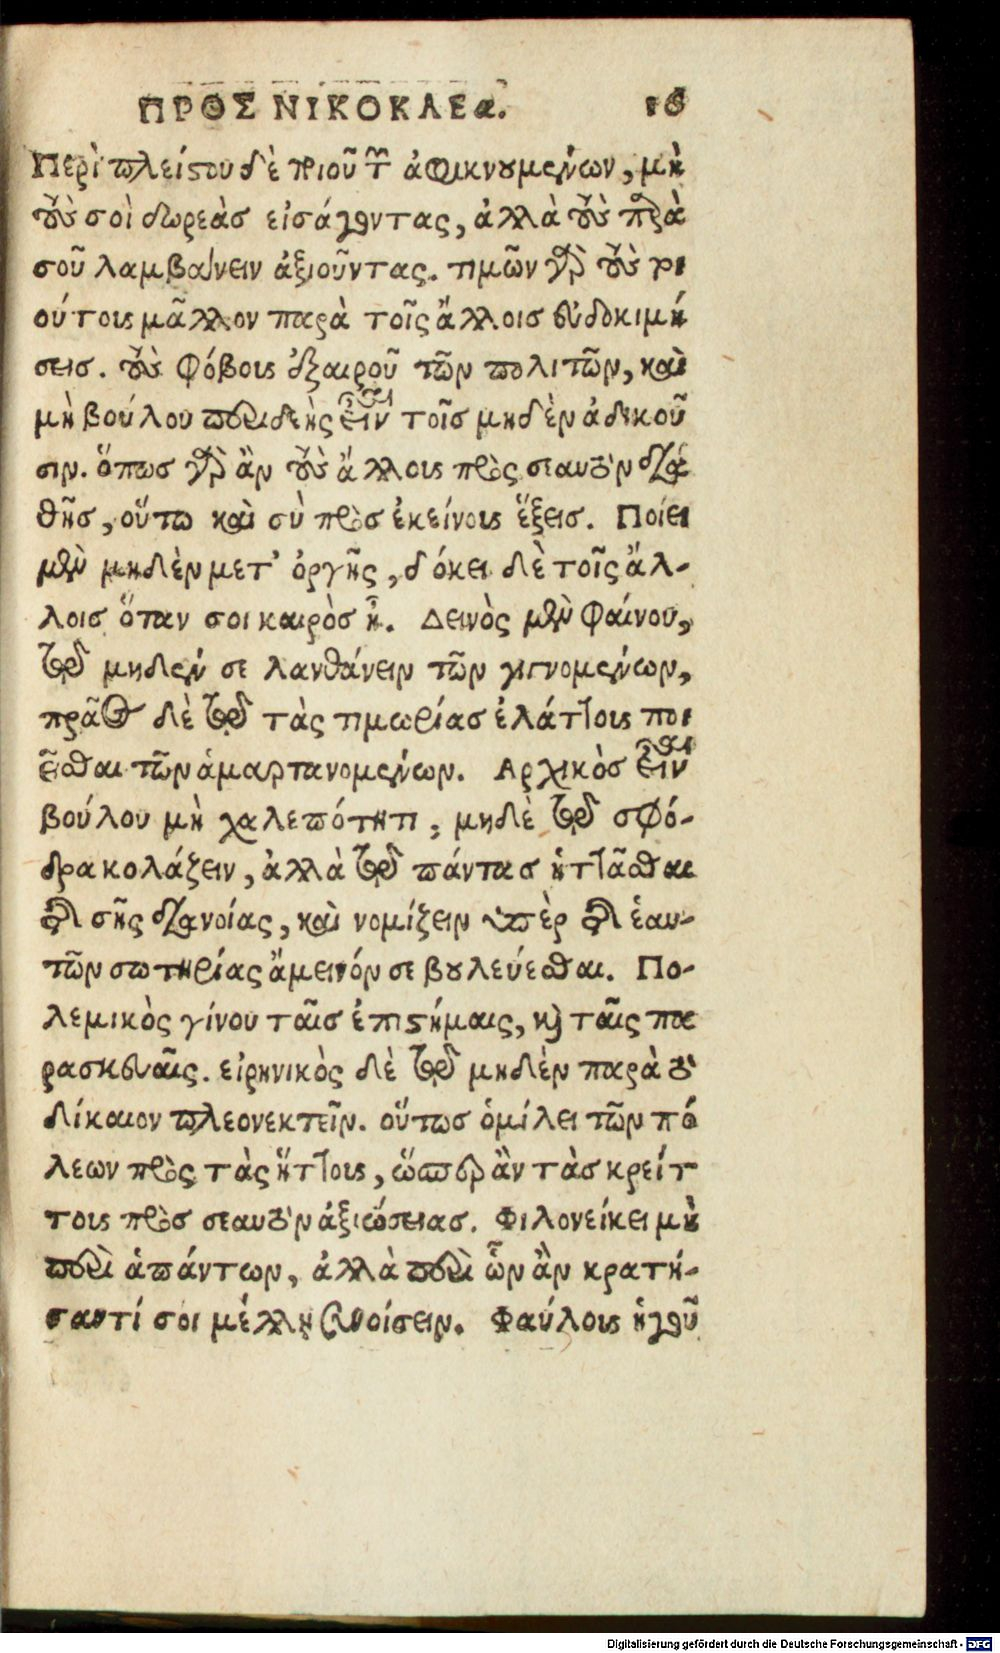 ΠΡΟΣ ΝΙΚΟΚΛΕα. 16
Περὶ πλείστου δὲ ποιοῦ τῶν ἀφικνουμένων, μὴ
τοὺς σοὶ δωρεὰσ εἰσάγοντας, ἀλλὰ τοὺς παρὰ
σοῦ λαμβάνειν ἀξιοῦντας. τιμῶν γὰρ τοὺς τοι
ούτους μᾶλλον παρὰ τοῖς ἄλλοισ εὐδοκιμή
σεισ. τοὺς φόβους ἐξαιροῦ τῶν πολιτῶν, καὶ
μὴ βούλου περιδεὴς εἶναι τοῖσ μηδὲν ἀδικοῦ
σιν. ὅπωσ γὰρ ἂν τοὺς ἄλλους πρὸς σεαυτὸν διαὰ
θῇσ, οὕτω καὶ σὺ πρὸσ ἐκείνους ἕξεισ. Ποίει
μὲν μηδὲν μετ' ὀργῆς, δόκει δὲ τοῖς ἄλ-
λοισ ὅταν σοι καιρὸσ ᾖ. Δεινὸς μὲν φαίνου,
τῷ μηδέν σε λανθάνειν τῶν γιγνομένων,
πρᾶος δὲ τῷ τὰς τιμωρίασ ἐλάττους ποι
εῖσθαι τῶν ἁμαρτανομένων. Αρχικὸσ εἶναι
βούλου μὴ χαλεπότητι, μηδὲ τῷ σφό-
δρα κολάζειν, ἀλλὰ τῷ πάντασ ἡττᾶσθαι
τῆς σῆς διανοίας, καὶ νομίζειν ὑπὲρ τῆς ἑαυ-
τῶν σωτηρίας ἄμεινόν σε βουλεύεσθαι. Πο-
λεμικὸς γίνου ταῖσ ἐπιστήμαις, καὶ ταῖς πα
ρασκευαῖς. εἰρηνικὸς δὲ τῷ μηδὲν παρὰ τὸ
δίκαιον πλεονεκτεῖν. οὕτωσ ὁμίλει τῶν πό
λεων πρὸς τὰς ἥττους, ὥσπερ ἂν τὰσ κρείτ
τους πρὸσ σεαυτὸν ἀξιώσειασ. Φιλονείκει μὴ
περὶ ἁπάντων, ἀλλὰ περὶ ὧν ἂν κρατή-
σαντί σοι μέλλῃ συνοίσειν. Φαύλους ἡγοῦ
Digitalisierung gefördert durch die Deutsche Forschungsgemeinschaft - DFG